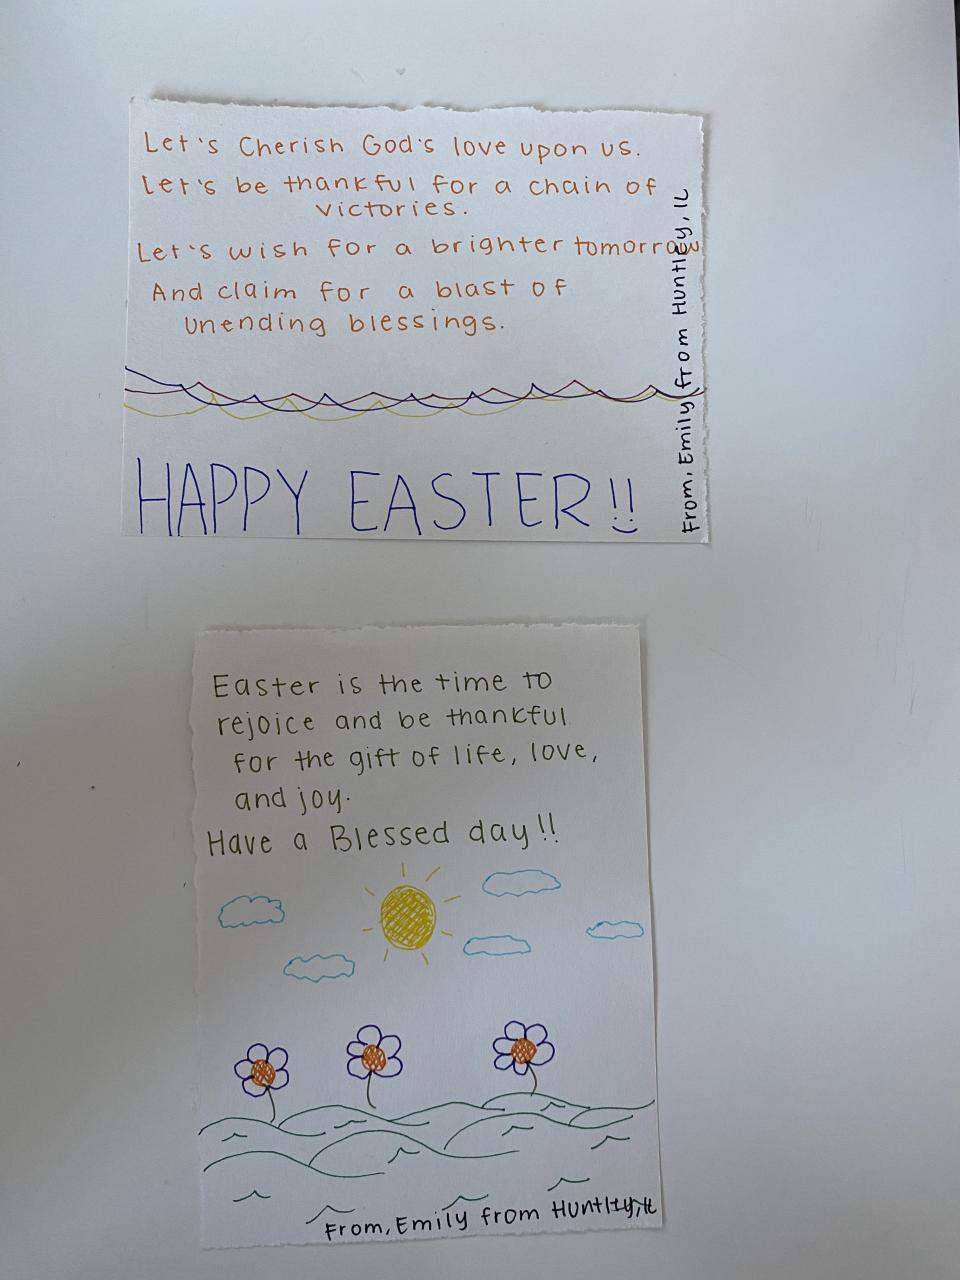 Let's Cherish God's love upon us.
Let's be thankful for a chain of
victories.
Let's wish for a brighter tomorrow
And claim for a blast of
unending blessings.
HAPPY EASTER!!
From, Emily from Huntley, IL
Easter is the time to
rejoice and be thankful
for the gift of life, love,
and joy.
Have a Blessed day!!
From, Emily from Huntley, IL